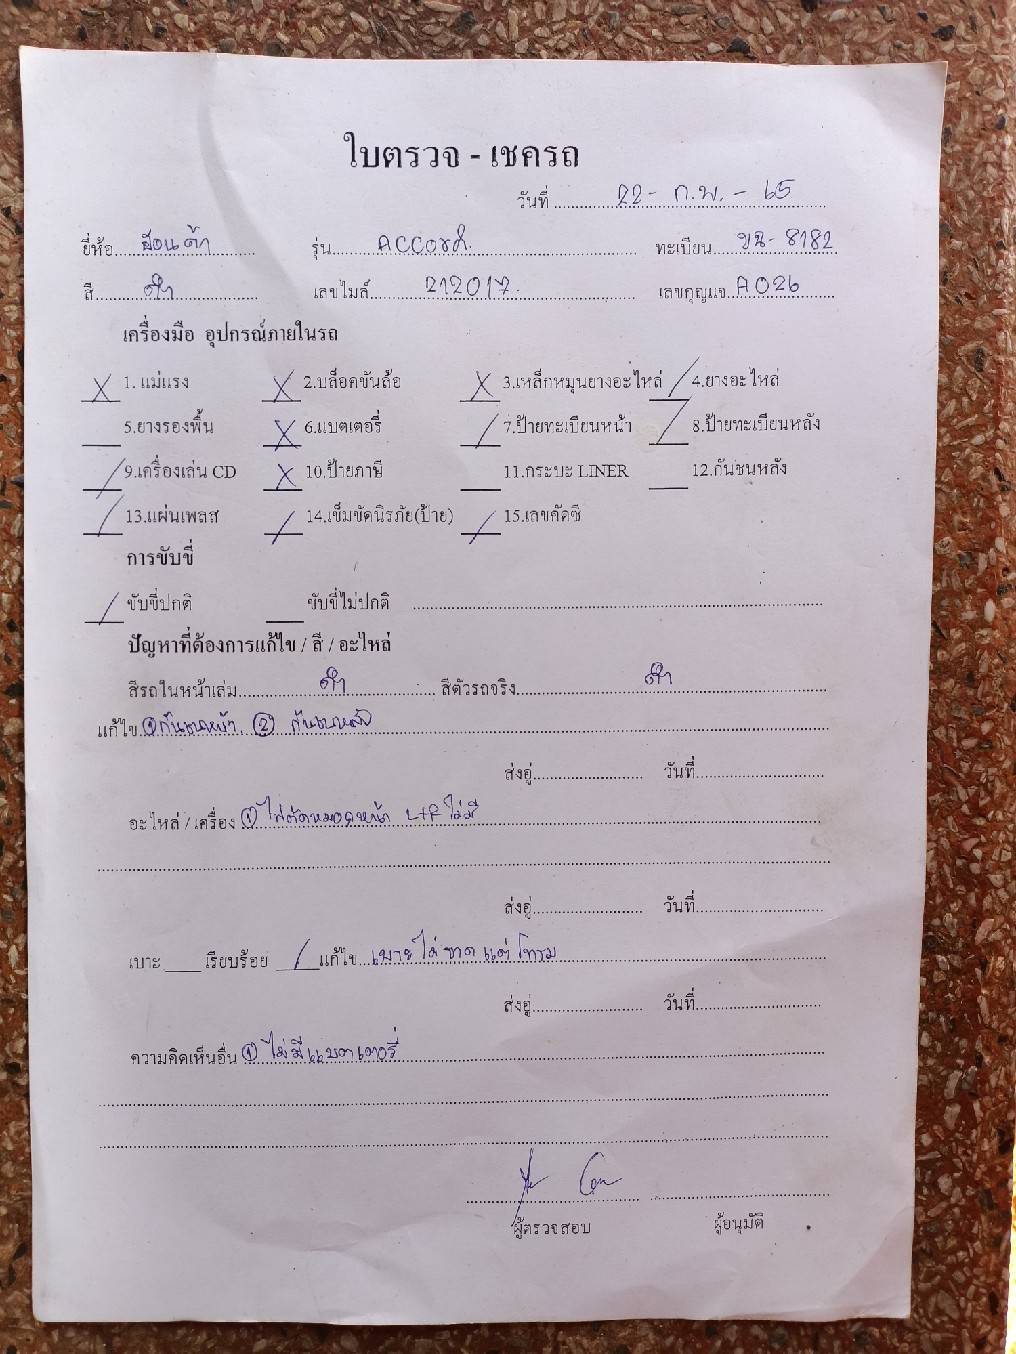 ใบตรวจ - เชครถ
วันที่ 22 - ก.พ. - 65
ยี่ห้อ ฮอนด้า รุ่น Accord ทะเบียน ขฉ-8182
สี ดำ เลขไมล์ 212017 เลขกุญแจ A026
เครื่องมือ อุปกรณ์ภายในรถ
X 1. แม่แรง X 2.บล็อคขันล้อ X 3.เหล็กหมุนยางอะไหล่ / 4.ยางอะไหล่
5.ยางรองพื้น X 6.แบตเตอรี่ / 7.ป้ายทะเบียนหน้า / 8.ป้ายทะเบียนหลัง
/ 9.เครื่องเล่น CD X 10.ป้ายภาษี 11.กระบะ LINER 12.กันชนหลัง
/ 13.แผ่นเพลส / 14.เข็มขัดนิรภัย(ป้าย) / 15.เลขคัดซี
การขับขี่
/ ขับขี่ปกติ ขับขี่ไม่ปกติ
ปัญหาที่ต้องการแก้ไข / สี / อะไหล่
สีรถในหน้าเล่ม ดำ สีตัวรถจริง ดำ
แก้ไข ① กันชนหน้า. ② กันชนหลัง
ส่งอู่ วันที่
อะไหล่ / เครื่อง ① ไฟตัดหมอกหน้า L+R ไม่มี
ส่งอู่ วันที่
เบาะ เรียบร้อย / แก้ไข เบาะไม่ขาด แต่ โทรม
ส่งอู่ วันที่
ความคิดเห็นอื่น ① ไม่มีแบตเตอรี่
ผู้ตรวจสอบ ผู้อนุมัติ